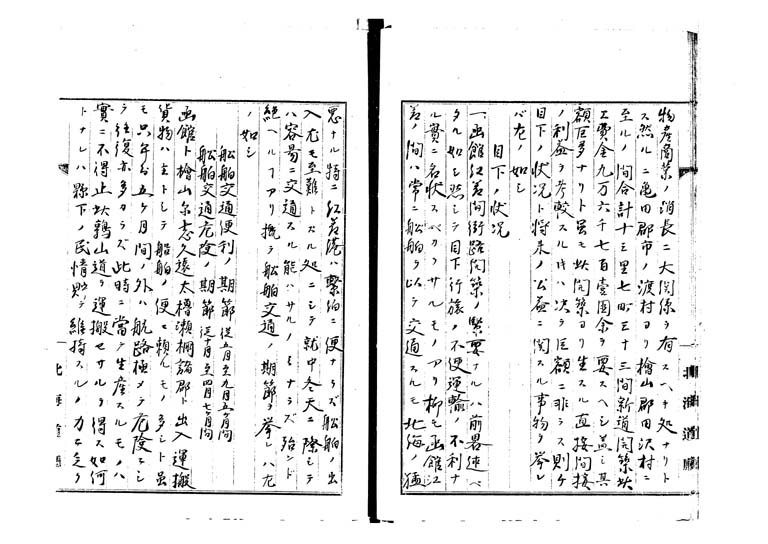 物産商業ノ消長ニ大関係ヲ有スヘキ処ナリト
ス然ルニ亀田郡市ノ渡村ヨリ檜山郡田沢村ニ
至ルノ間合計十三里七町三十三間新道開築此
工費金九万六千七百壹圓余ヲ要スヘシ蓋シ其
額巨多ナリト虽モ此開築ヨリ生スル直接間接
ノ利益ヲ考較スル時ハ决ラ巨額ニ非ラス則ケ
目下ノ状况ト将来ノ公益ニ関スル事物ヲ挙レ
バ左ノ如シ
目下ノ状况
一函館江差間街路開築ノ緊要ナルハ前畧述ベ
タル如シ然シテ目下行旅ノ不便運輸ノ不利ナ
ル實ニ名状スベカラサルモノアリ抑モ函館江
差ノ間ハ常ニ船舶ヲ以テ交通スルモ北海ノ猛
北海道廳
悪ナル特ニ江差港ハ繋泊ニ便ナラズ船舶ノ出
入尤モ至難トスル処ニシテ就中冬天ニ際シテ
ハ容易ニ交通スル能ハサルノミナラズ殆ンド
絶ヘルアリ抵テ船舶交通ノ期節ヲ挙レハ左
ノ如シ
船舶交通便利ノ期節 従五月至九月五ヶ月間
船舶交通危険ノ期節 従十月至四月七ヶ月間
函館ト檜山尓志久遠太櫓瀬棚諸郡ト出入運搬
貨物ハ主トシテ船舶ノ便ニ頼ルモノ多シト虽
モ只年お五ヶ月間ノ外ハ航路極メテ危険ニシ
テ往復亦多カラズ此時ニ當テ生産スルモノハ
實ニ不得止此鶉山道ヲ運搬セサルヲ得ス如何
トナレハ縣下ノ民情與ヲ維持スルノ力ナキヲ
北海道廳